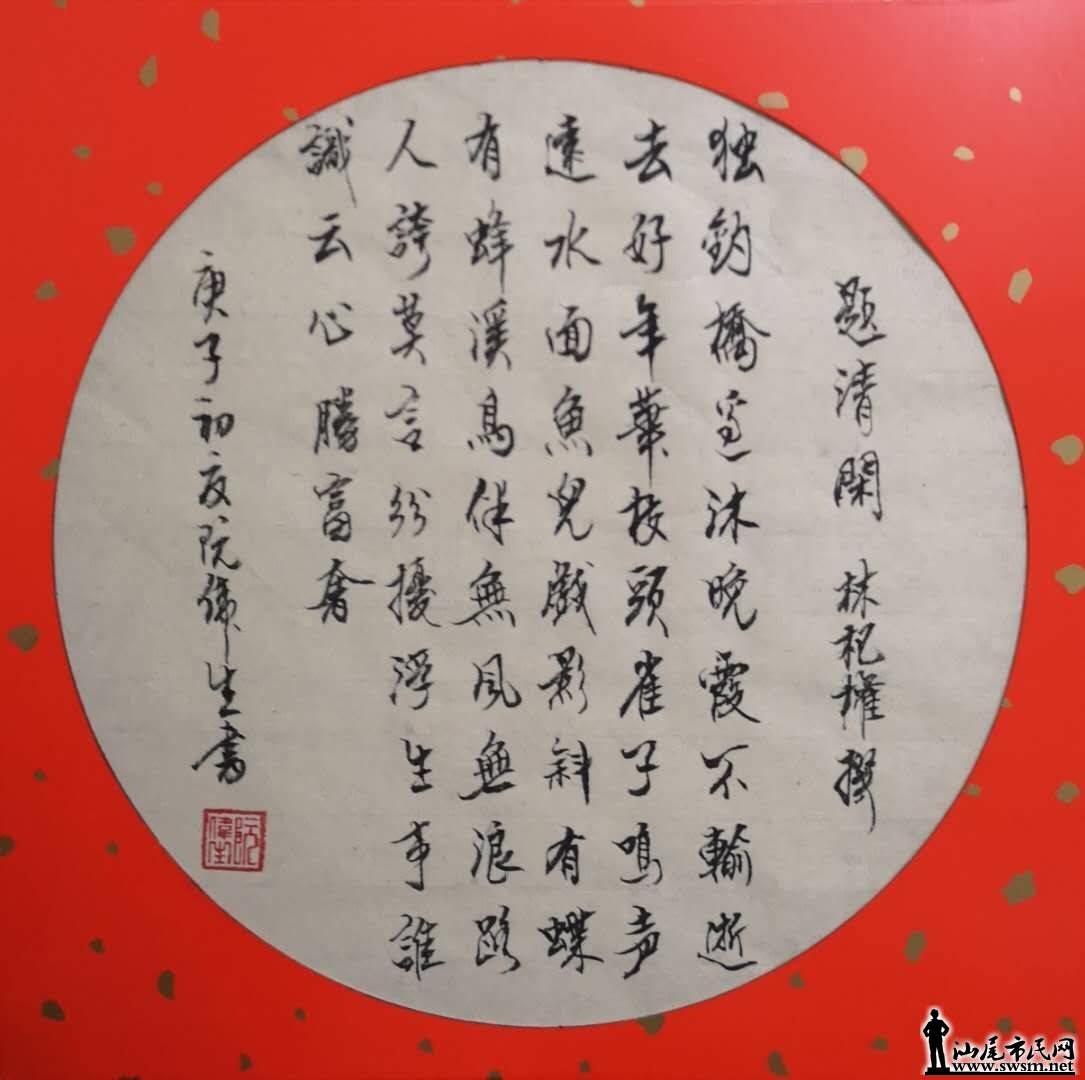 题清閑 林杞權撰
独釣橋边沐晚霞不輸逝
去好年華枝頭雀子鳴声
遠水面魚兒戲影斜有蝶
有蜂溪鳥伴無風無浪路
人誇莫言紛擾浮生事誰
識云心勝富奢
庚子初夏阮伟生書
阮偉生
汕尾市民网
www.swsm.net